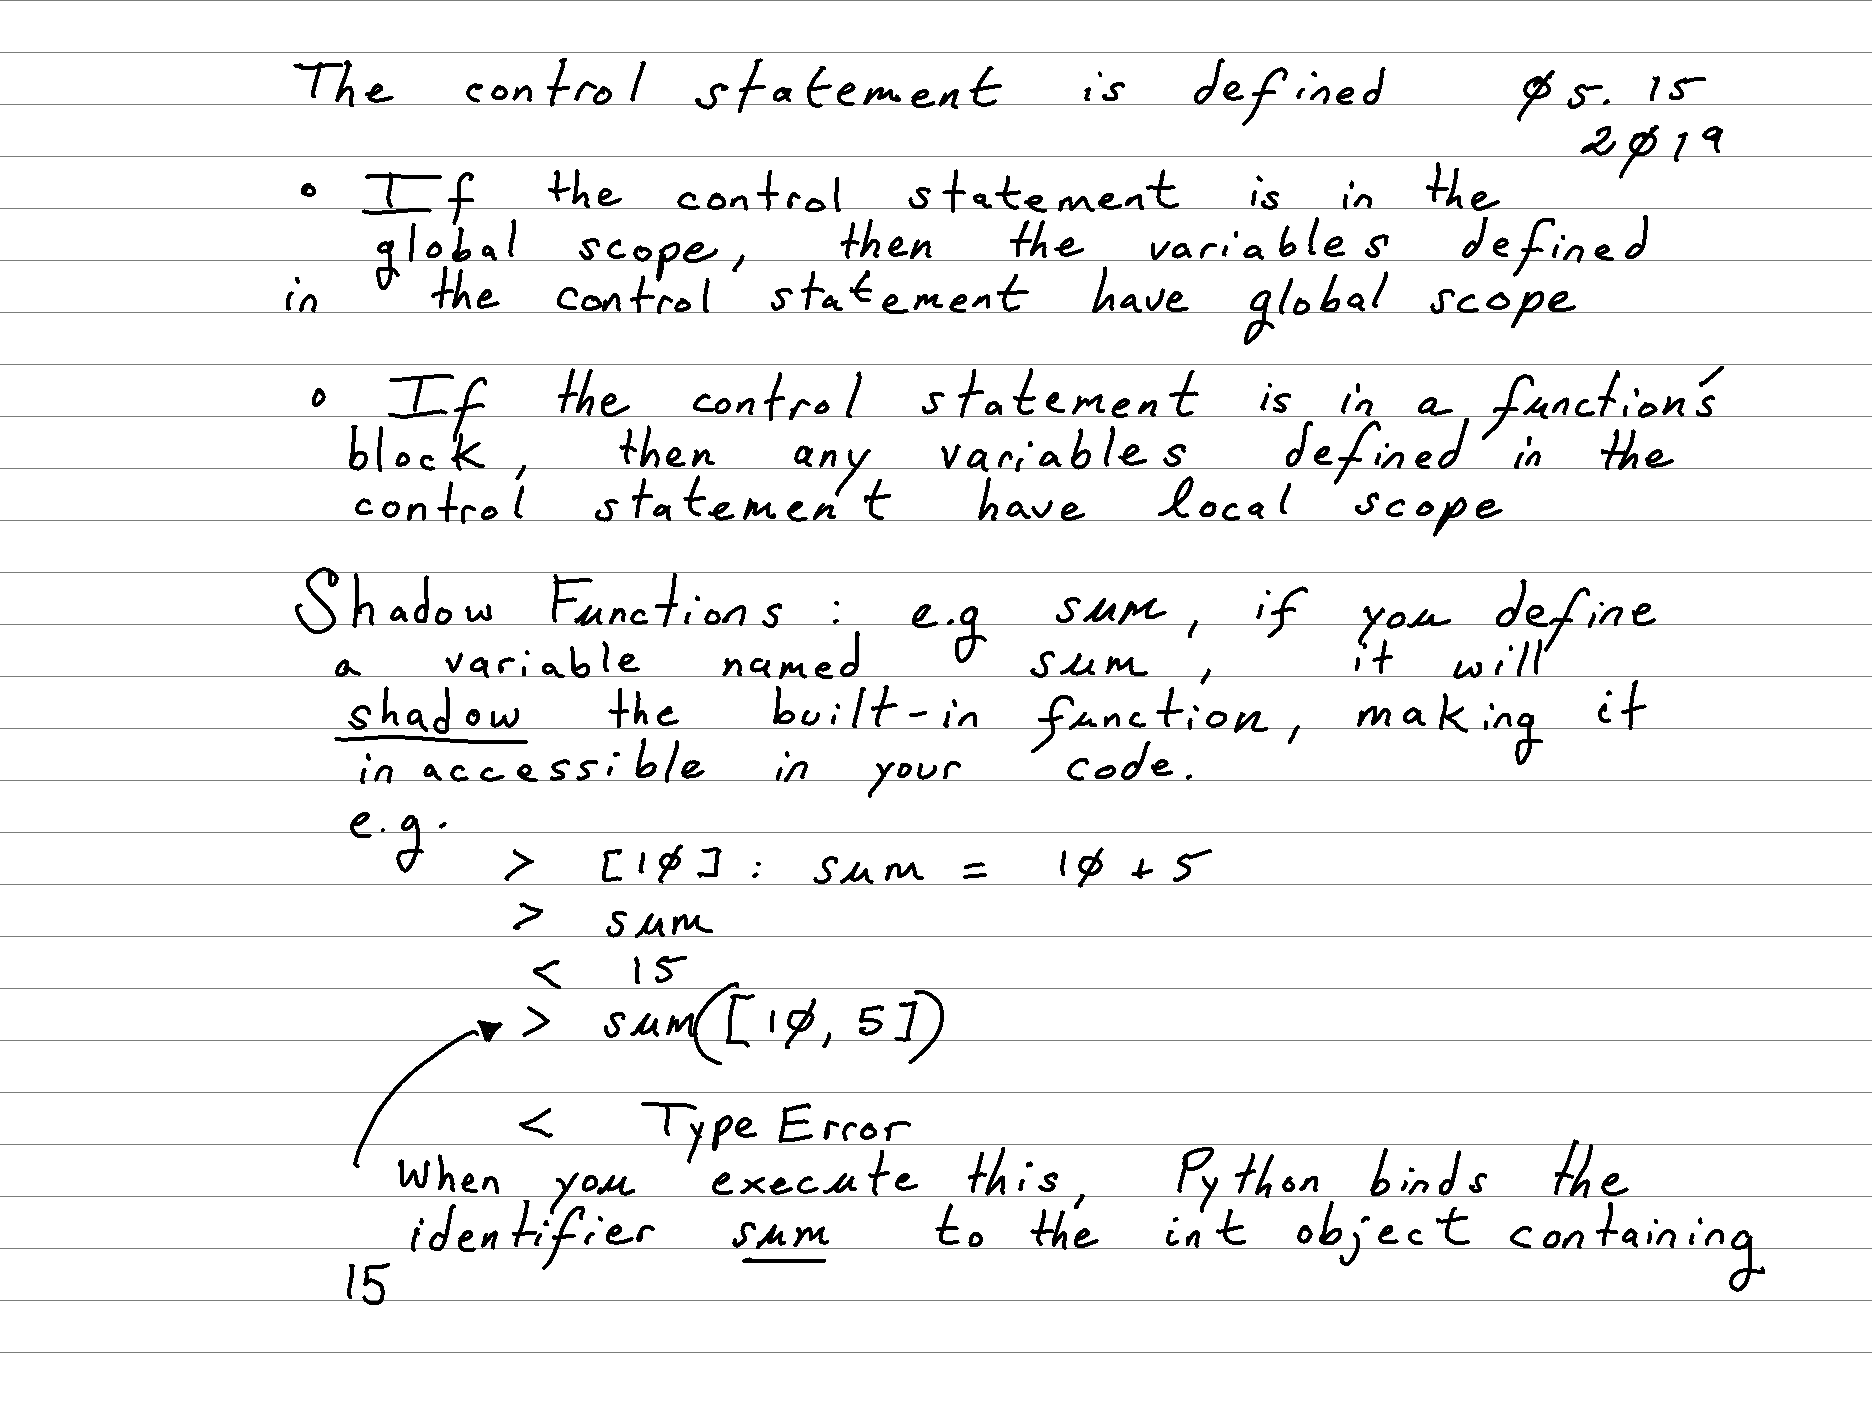 The control statement is defined 05. 15
2019
• If the control statement is in the
global scope, then the variables defined
in the control statement have global scope
• If the control statement is in a function's
block, then any variables defined in the
control statement have local scope
Shadow Functions : e.g sum, if you define
a variable named sum, it will
shadow the built-in function, making it
inaccessible in your code.
e.g.
> [10] : sum = 10 + 5
> sum
< 15
> sum([10, 5])
< Type Error
When you execute this, Python binds the
identifier sum to the int object containing
15